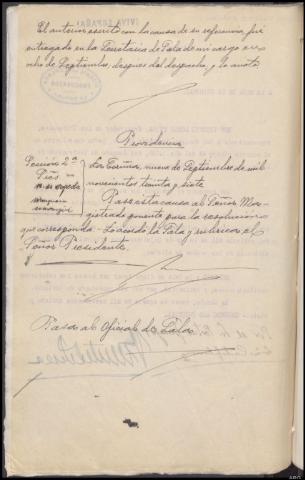 El anterior escrito con la causa de su referencia, fué
entregado en la Secretaría de Sala de mi cargo en
ocho de Septiembre, despues del despacho, y lo anoto
Providencia
Sección 2ª
Sres
La Coruña, nueve de Septiembre de mil
novecientos treinta y siete
Pase esta causa al Señor Ma-
gistrado ponente para la resolución
que corresponda. Lo acordó la Sala y rubrica el
Señor Presidente.
Pasa al Oficial de Sala.